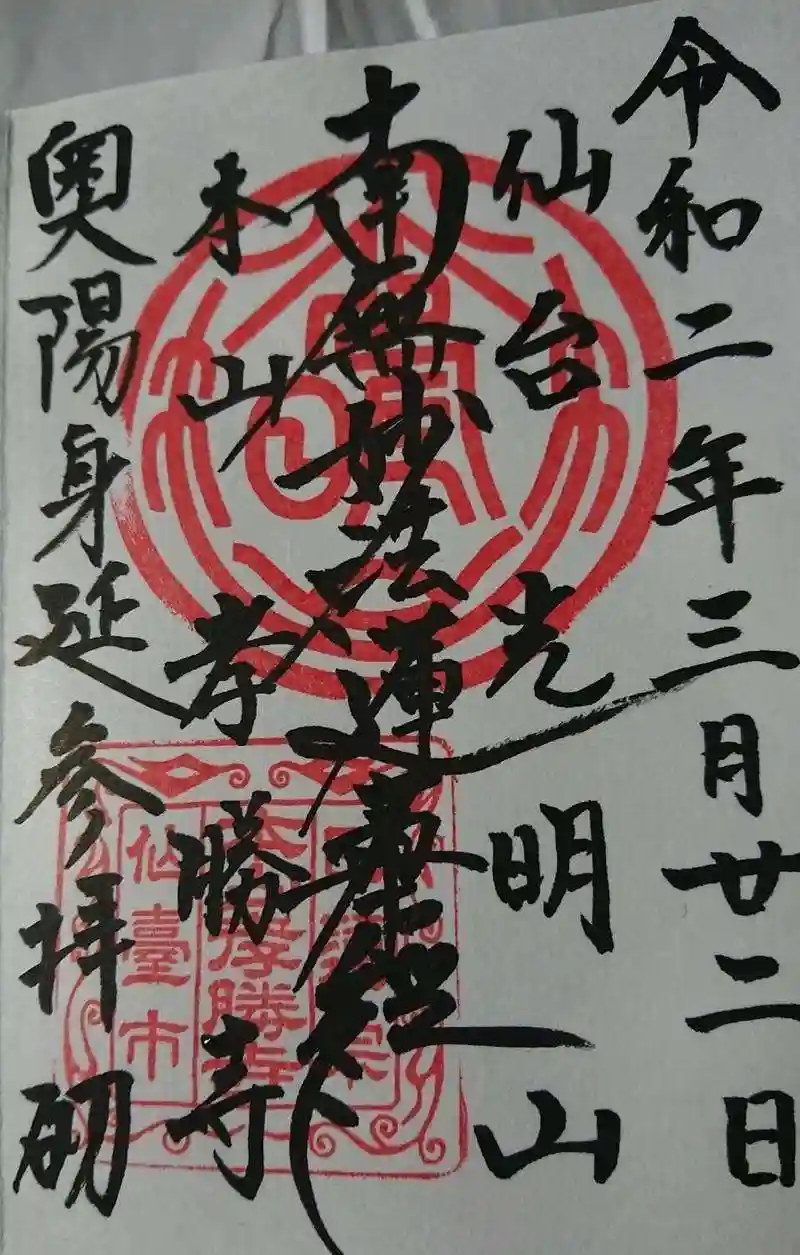 令和二年三月廿二日
仙台光明山
南無妙法蓮華経
本山孝勝寺
奥陽身延参拝砌
孝勝寺
仙臺市